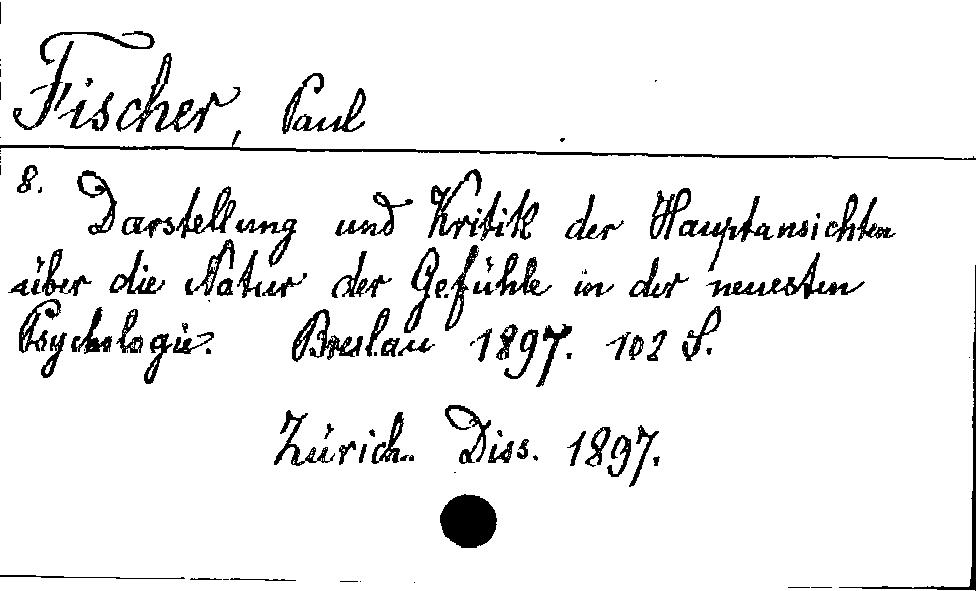 Fischer, Paul
8. Darstellung und Kritik der Hauptansichten
über die Natur der Gefühle in der neuesten
Psychologie. Breslau 1897. 102 S.
Zürich. Diss. 1897.